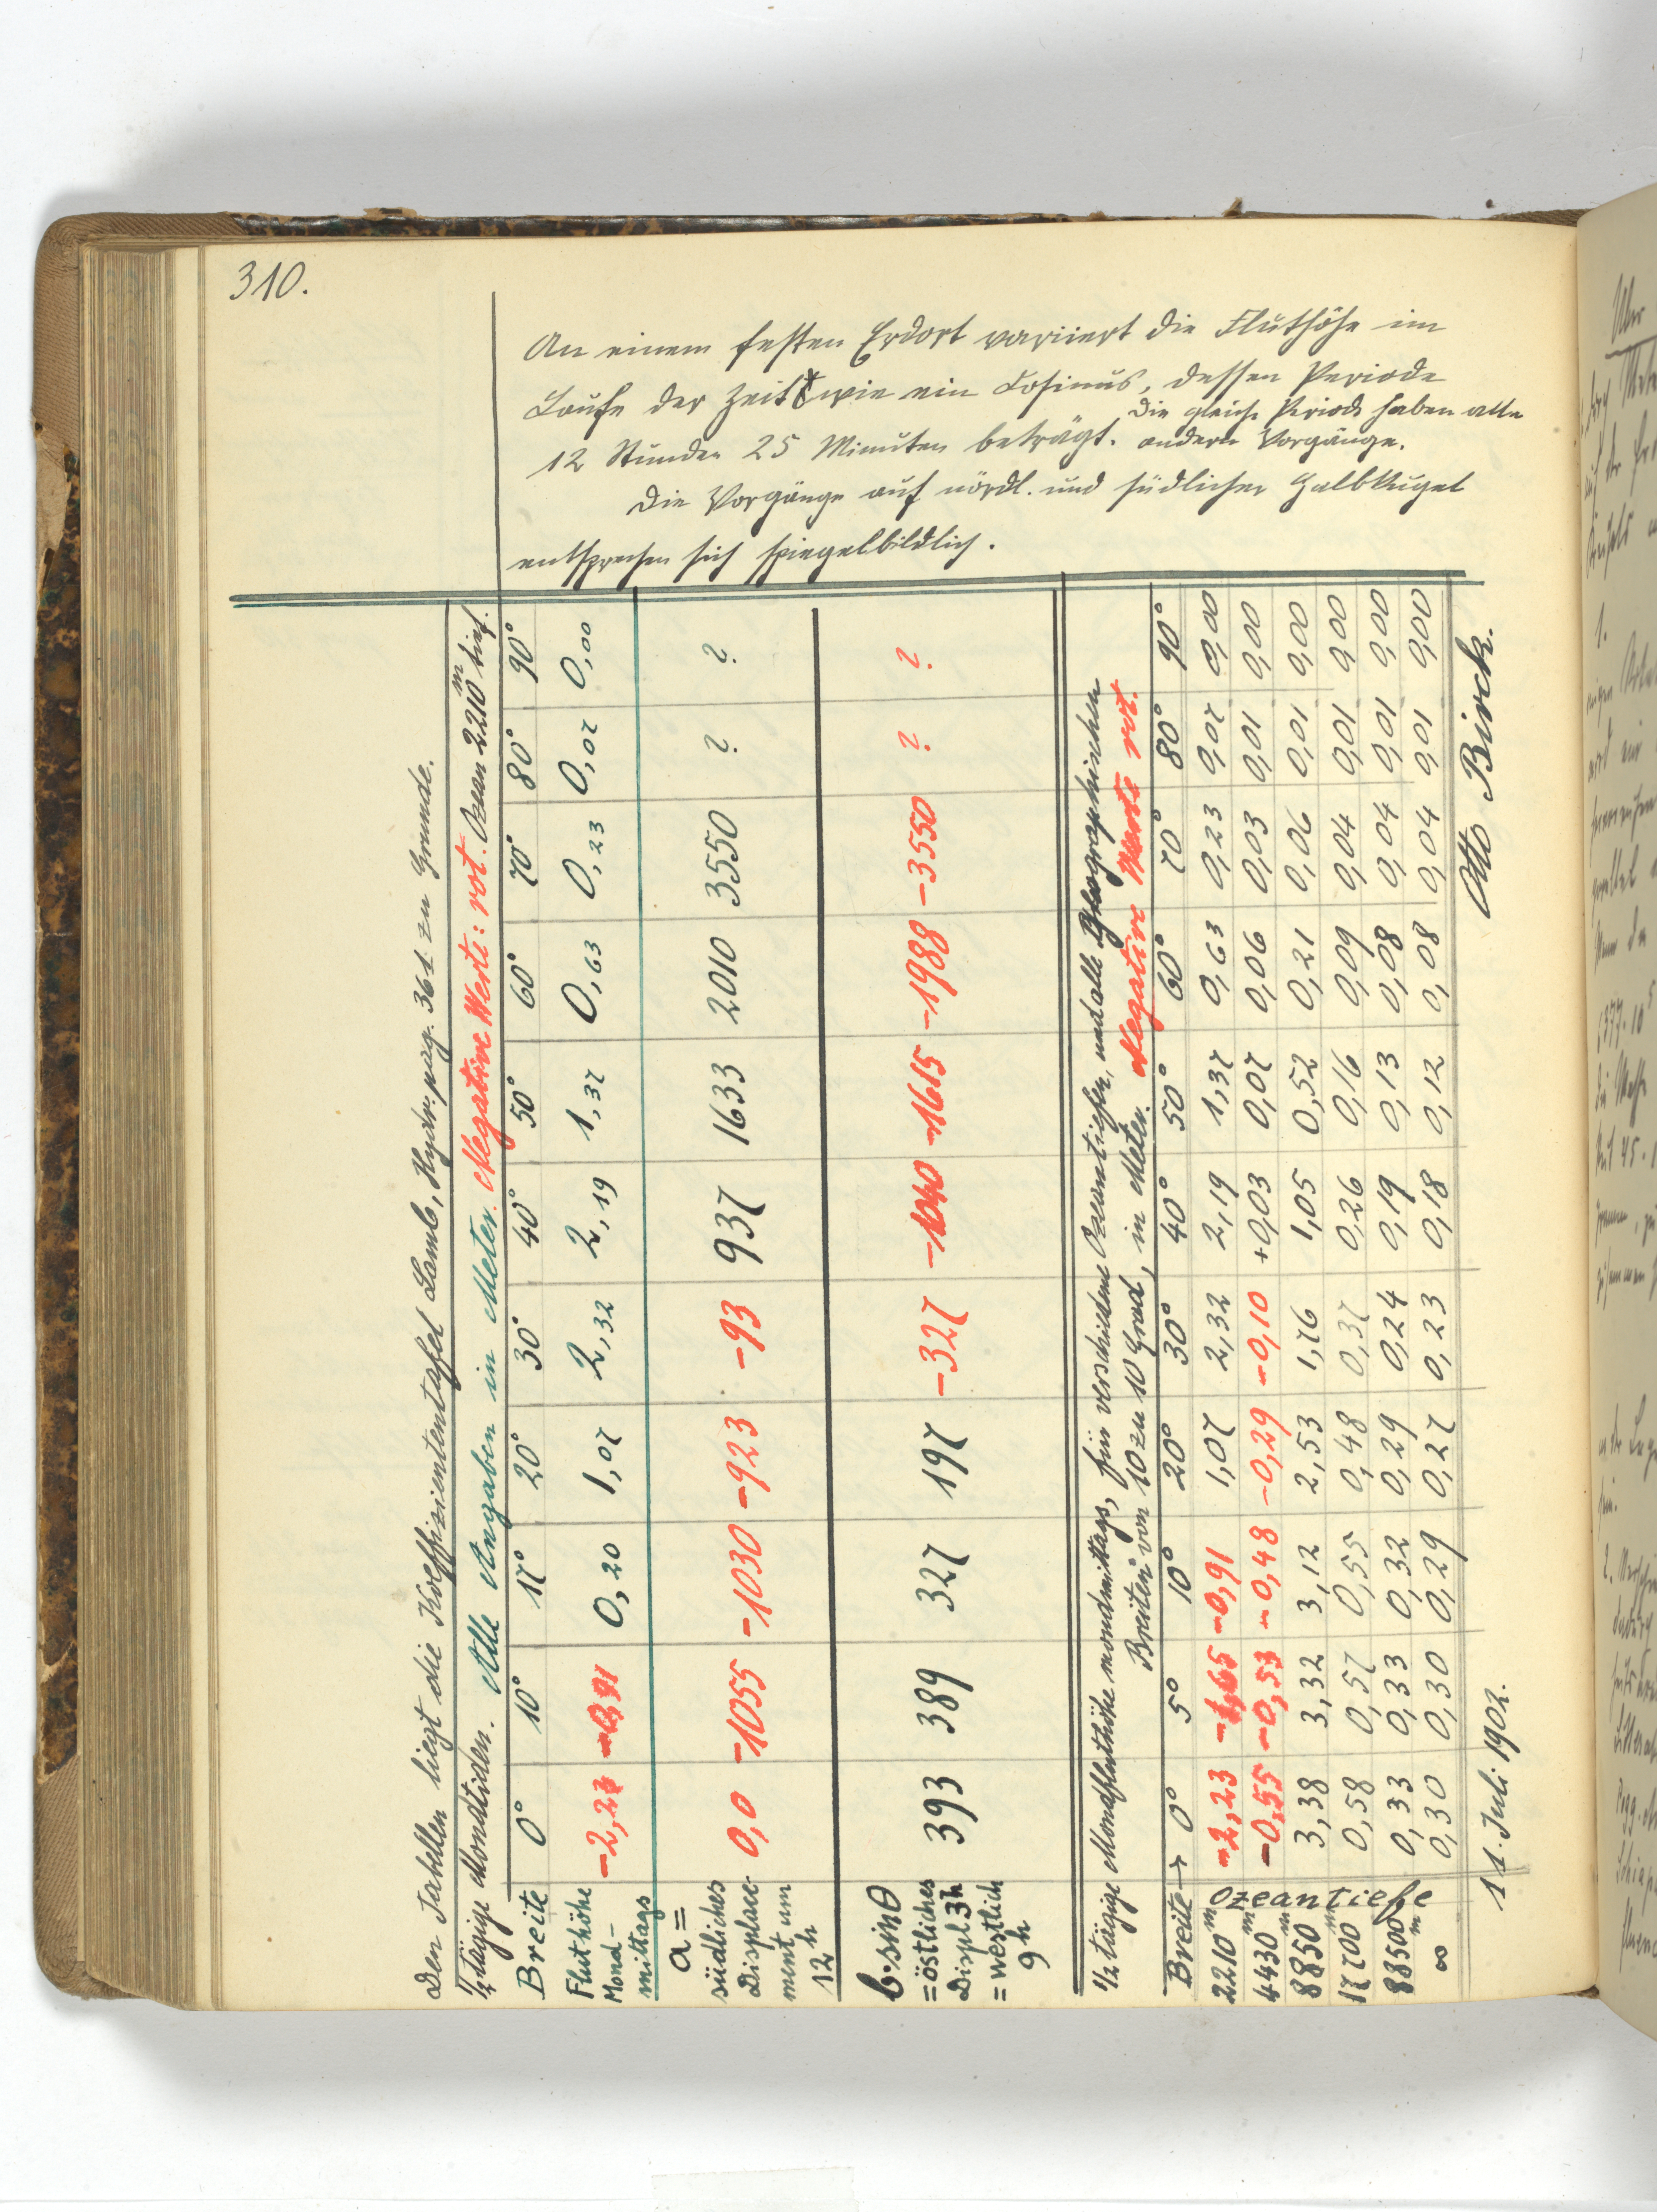 310.
An einem festen Erdort variiert die Fluthöhe im
Laufe der Zeit wie ein Cosinus, dessen Periode
12 Stunden 25 Minuten beträgt. Die gleiche Periode haben alle
andern Vorgänge.
Die Vorgänge auf nördl. und südlicher Halbkugel
entsprechen sich spiegelbildlich.
Den Tabellen liegt die Koeffizientontafel Lamb, Hydr. pag. 361 zu Grunde.
½ tägige Mondtiden. Alle Angaben in Meter. Negative Werte: rot. Ozean 2210 m tief.
Breite 0° 10° 17° 20° 30° 40° 50° 60° 70° 80° 90°
Fluthöhe Mond-mittags -2,23 -0,91 0,20 1,07 2,32 2,19 1,37 0,63 0,23 0,07 0,00
a = südliches Displacement um 12 h 0,0 -1055 -1030 -923 -93 937 1633 2010 3550 ? ?
b·sinθ = östliches Displ 3h = westlich 9 h 393 389 327 197 -327 -1040 -1615 -1988 -3550 ? ?
½ tägige Mondfluthöhe mondmittags, für verschiedene Ozeantiefen, und alle Geographischen
Breiten von 10 zu 10 Grad, in Meter. Negative Werte rot.
Breite → 0° 5° 10° 20° 30° 40° 50° 60° 70° 80° 90°
Ozeantiefe
2210 m -2,23 -1,65 -0,91 1,07 2,32 2,19 1,37 0,63 0,23 0,07 0,00
4430 m -0,55 -0,53 -0,48 -0,29 -0,10 +0,03 0,07 0,06 0,03 0,01 0,00
8850 m 3,38 3,32 3,12 2,53 1,76 1,05 0,52 0,21 0,06 0,01 0,00
17700 m 0,58 0,57 0,55 0,48 0,37 0,26 0,16 0,09 0,04 0,01 0,00
88500 m 0,33 0,33 0,32 0,29 0,24 0,19 0,13 0,08 0,04 0,01 0,00
∞ 0,30 0,30 0,29 0,27 0,23 0,18 0,12 0,08 0,04 0,01 0,00
11. Juli 1902. Otto Birck.